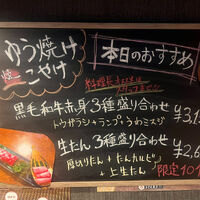 ゆう焼け
こやけ
本日のおすすめ
黒毛和牛赤身3種盛り合わせ
トウガラシ+ランプ+うわミスジ
¥3,1
生たん3種盛り合わせ
¥2,6
厚切りたん+たんカルビ
+上生たん
限定10